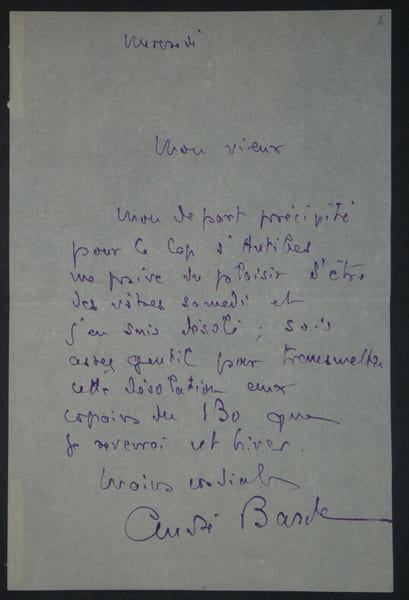 Mercredi
Mon vieux
Mon départ précipité
pour le Cap d'Antibes
me prive du plaisir d'être
des vôtres samedi et
j'en suis désolé ; sois
assez gentil pour transmettre
cette désolation aux
copains du 130 que
je reverrai cet hiver.
Mains cordiales
André Barde